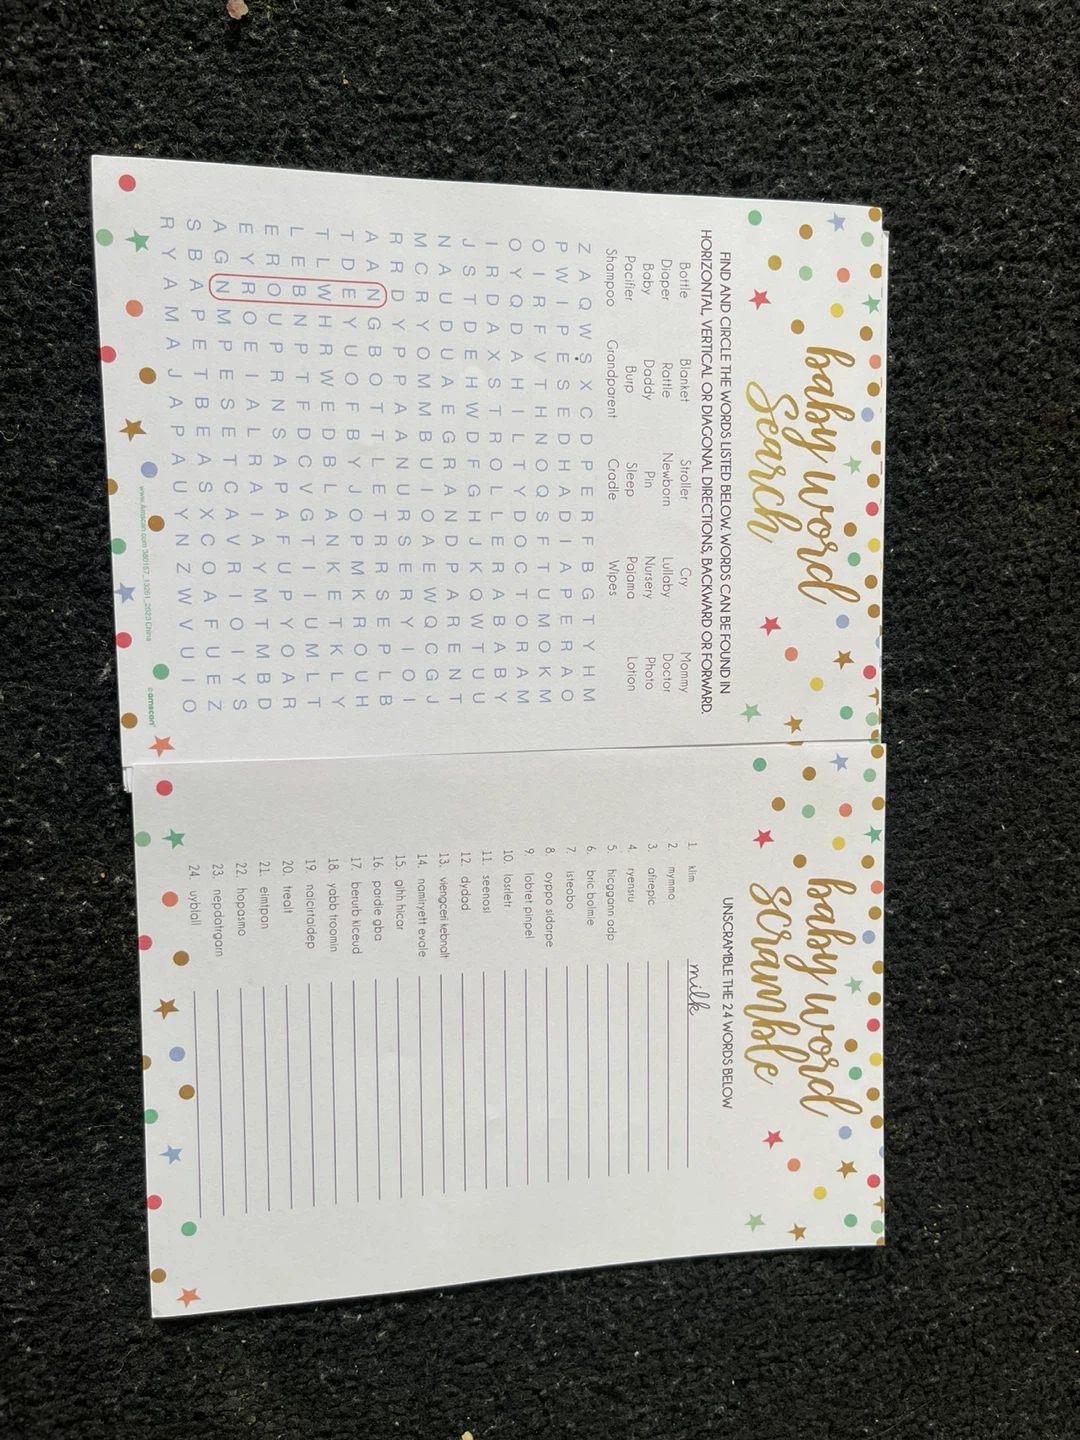 baby word
Search
FIND AND CIRCLE THE WORDS LISTED BELOW. WORDS CAN BE FOUND IN
HORIZONTAL, VERTICAL OR DIAGONAL DIRECTIONS, BACKWARD OR FORWARD.
Bottle Blanket Stroller Cry Mommy
Diaper Rattle Newborn Lullaby Doctor
Baby Daddy Pin Nursery Photo
Pacifier Burp Sleep Pajama Lotion
Shampoo Grandparent Cradle Wipes
Z A Q W S X C D P E R F B G T Y H M
P W I P E S E D H A D I A P E R A O
O I R F V T H N O Q S F T U M O K M
O Y Q D A H I L T Y D O C T O R A M
I R D A X S T R O L L E R A B A B Y
J S T D E H W D F G H J K Q W T U U
N A U D U A E G R A N D P A R E N T
M C R Y O M M B U I O A E W Q C G J
R R D Y P P A A N U R S E R Y I O I
A A N G B O T T L E T R R S E P L B
T D E Y U O F B Y J O P M K R O U H
T L W H R W E D B L A N K E T K L Y
L E B N P T F D C V G T I I U M L T
E R O U P R N S A P A F U P Y O A R
E Y R O E I A L R A I A Y M T M B D
A G N M P E S E T C A V R I O I Y S
S B A P E T B E A S X C O A F U E Z
R Y A M A J A P A U Y N Z W V U I O
www.Amscan.com 380157_13251_2023 China
©amscan
baby word
scramble
UNSCRAMBLE THE 24 WORDS BELOW
1. klim milk
2. mymmo
3. afirepic
4. ryensru
5. hicggann adp
6. bric bolmie
7. isteobo
8. oyppo sidarpe
9. lobtet pinpel
10. losrletr
11. seenosi
12. dydad
13. viengceri kebnalt
14. namiryett evale
15. gihh hicar
16. pardie gba
17. berurb kiceud
18. yabb troomin
19. nalcirtaidep
20. trealt
21. eimtpan
22. hopasmo
23. nepdatrgarn
24. uyblall